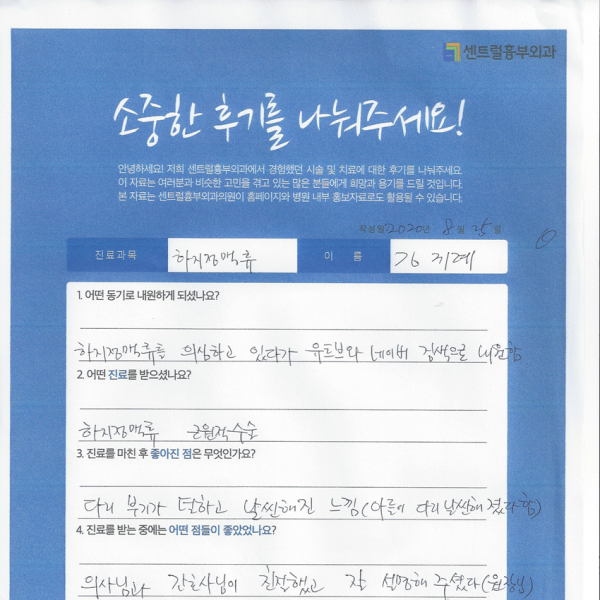 센트럴흉부외과
소중한 후기를 나눠주세요!
안녕하세요! 저희 센트럴흉부외과에서 경험했던 시술 및 치료에 대한 후기를 나눠주세요.
이 자료는 여러분과 비슷한 고민을 겪고 있는 많은 분들에게 희망과 용기를 드릴 것입니다.
본 자료는 센트럴흉부외과의원이 홈페이지와 병원 내부 홍보자료로도 활용될 수 있습니다.
작성일 2020년 8월 25일
진료과목 하지정맥류 이 름
1. 어떤 동기로 내원하게 되셨나요?
하지정맥류를 의심하고 있다가 유튜브와 네이버 검색으로 내원함
2. 어떤 진료를 받으셨나요?
하지정맥류 근원적수술
3. 진료를 마친 후 좋아진 점은 무엇인가요?
다리 부기가 덜하고 날씬해진 느낌(아들이 다리 날씬해졌다함)
4. 진료를 받는 중에는 어떤 점들이 좋았었나요?
의사님과 간호사님이 친절했고 잘 설명해 주셨다(원장님)